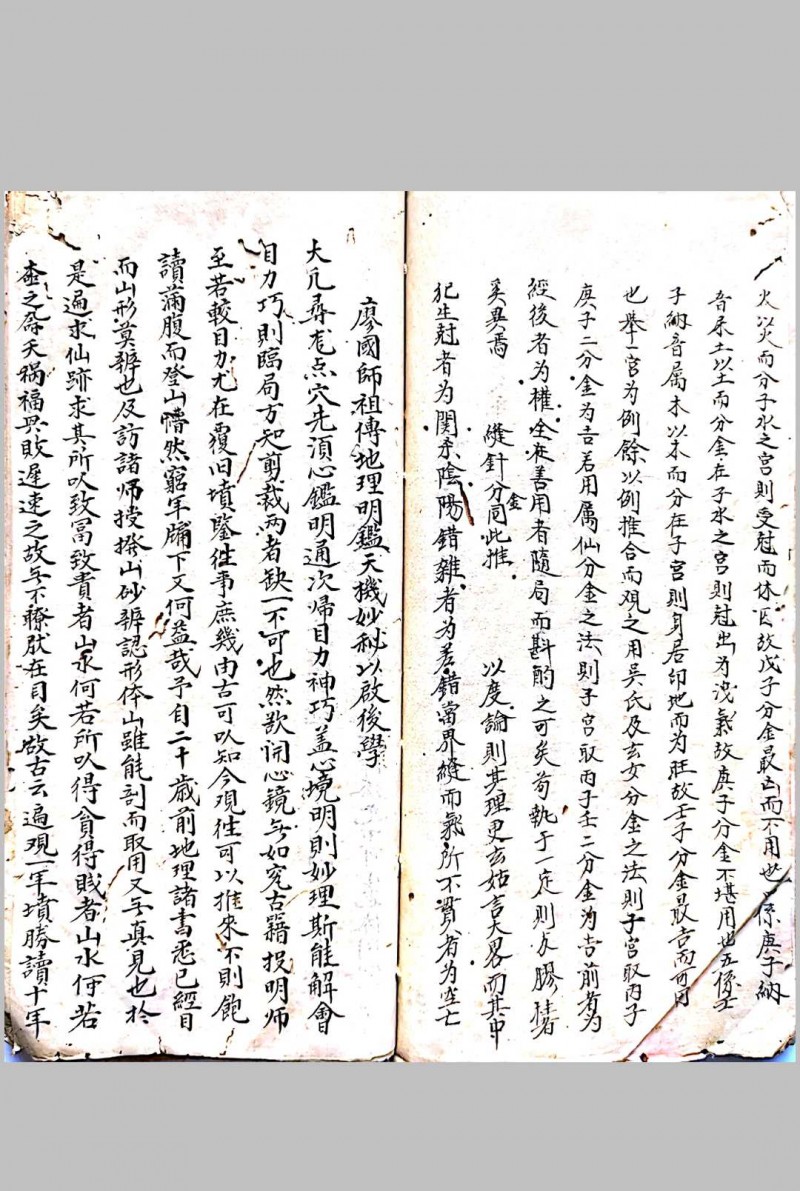 火以火而分子水之宮則受尅而休囚故戊子分金最凶而不用也四係庚子納
音屬土以土而分金在子水之宮則尅出为洩氣故庚子分金不堪用也五係壬
子納音属木以木而分在子宮則身居印地而为旺故壬子分金最吉而可用
也舉一宮为例餘以例推合而观之用吳氏及玄女分金之法則子宮取丙子
庚子二分金为吉若用属仙分金之法則子宮取丙子壬二分金为吉前者为
經後者为權全在善用者隨局而斟酌之可矣苟執于一定則与膠柱者
奚異焉 縫針分金同此推 以度論則其理更玄姑言大畧而其中
犯生尅者为関杀陰陽錯雜者为差錯當界縫而氣所不貫者为空亡
廖國師祖傳地理明鑑天機妙秘以啟後學
大凡尋龙点穴先須心鑑明通次帰目力神巧盖心境明則妙理斯能解會
目力巧則臨局方知剪裁两者缺一不可也然欲開心鏡无如究古籍投明师
至若較目力尤在覆旧墳鑒往事庶幾由古可以知今观往可以推来不則飽
讀滿腹而登山懵然窮年牖下又何益哉予自二十歲前地理諸書悉已經目
而山形莫辨也及訪諸师授撥山砂辨認形体山雖能剖而取用又无真見也於
是遍求仙跡求其所以致富致貴者山水何若所以得貧得賎者山水何若
壶之壽夭禍福興敗遲速之故无不瞭然在目矣故古云遍观一年墳勝讀十年